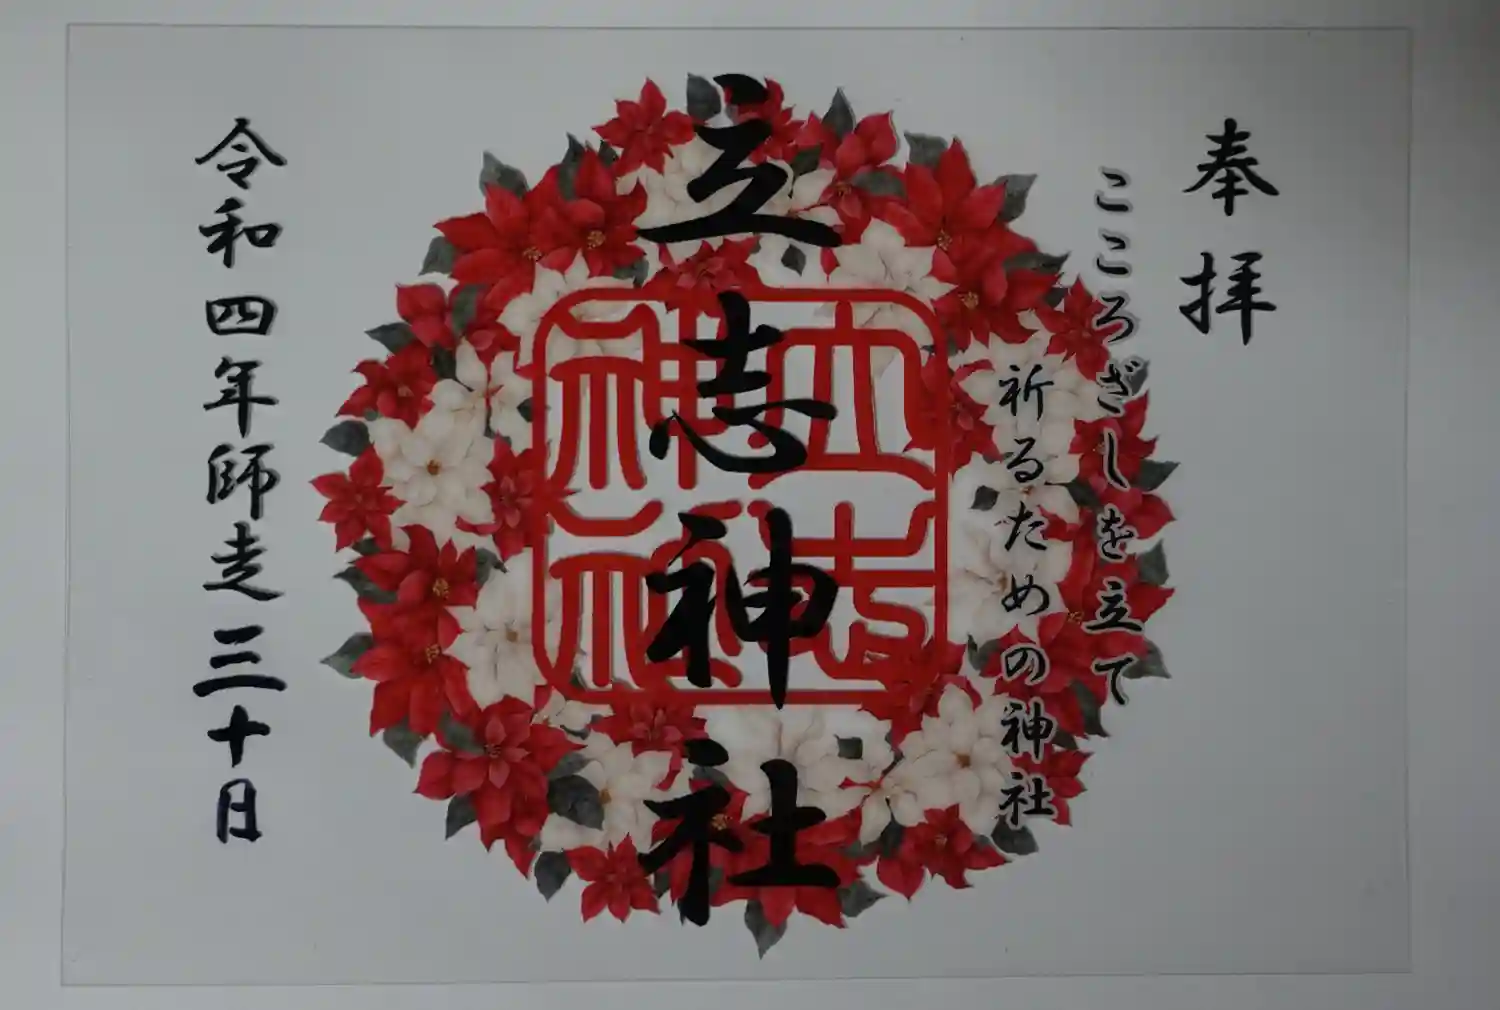 奉拝
こころざしを立て
祈るための神社
立志神社
立志神社
令和四年師走三十日